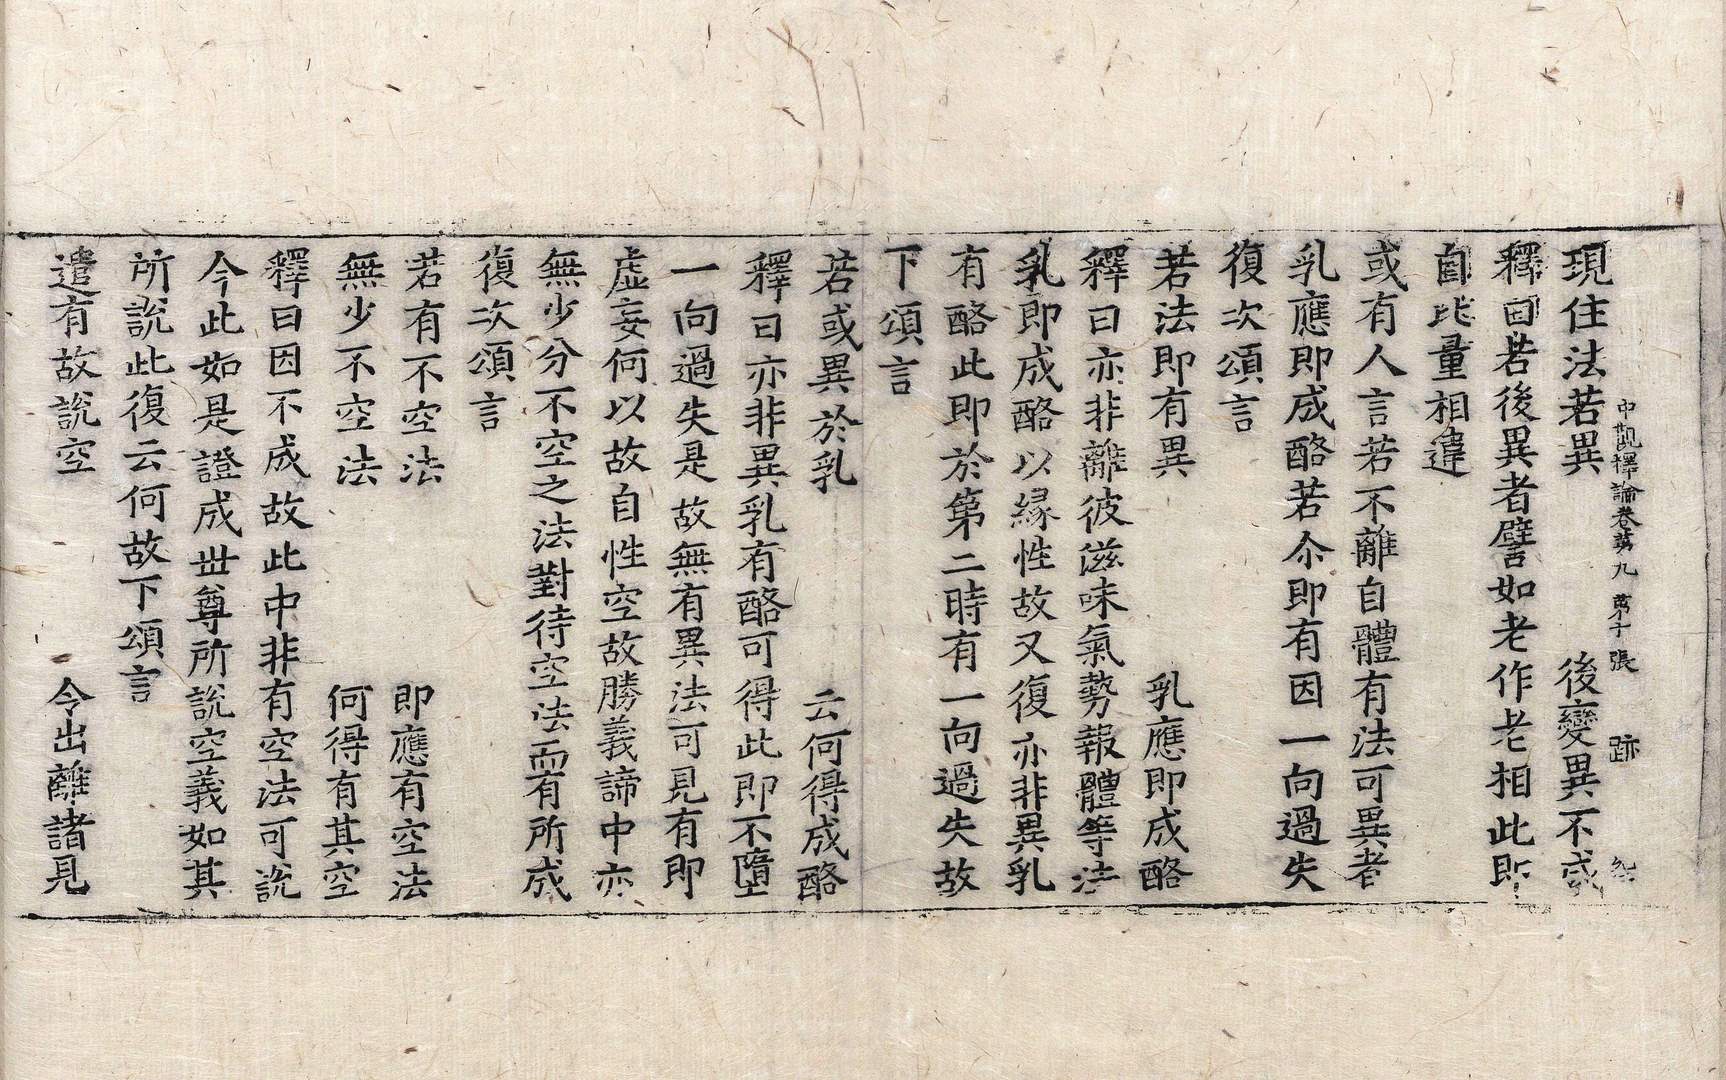 中觀釋論卷第九 第十張 跡
現住法若異 後變異不成
釋曰若後異者譬如老作老相此即
自比量相違
或有人言若不離自體有法可異者
乳應即成酪若尒即有因一向過失
復次頌言
若法即有異 乳應即成酪
釋曰亦非離彼滋味氣勢報體等法
乳即成酪以緣性故又復亦非異乳
有酪此即於第二時有一向過失故
下頌言
若或異於乳 云何得成酪
釋曰亦非異乳有酪可得此即不墮
一向過失是故無有異法可見有即
虛妄何以故自性空故勝義諦中亦
無少分不空之法對待空法而有所成
復次頌言
若有不空法 即應有空法
無少不空法 何得有其空
釋曰因不成故此中非有空法可說
今此如是證成丗尊所說空義如其
所說此復云何故下頌言
遣有故說空 令出離諸見